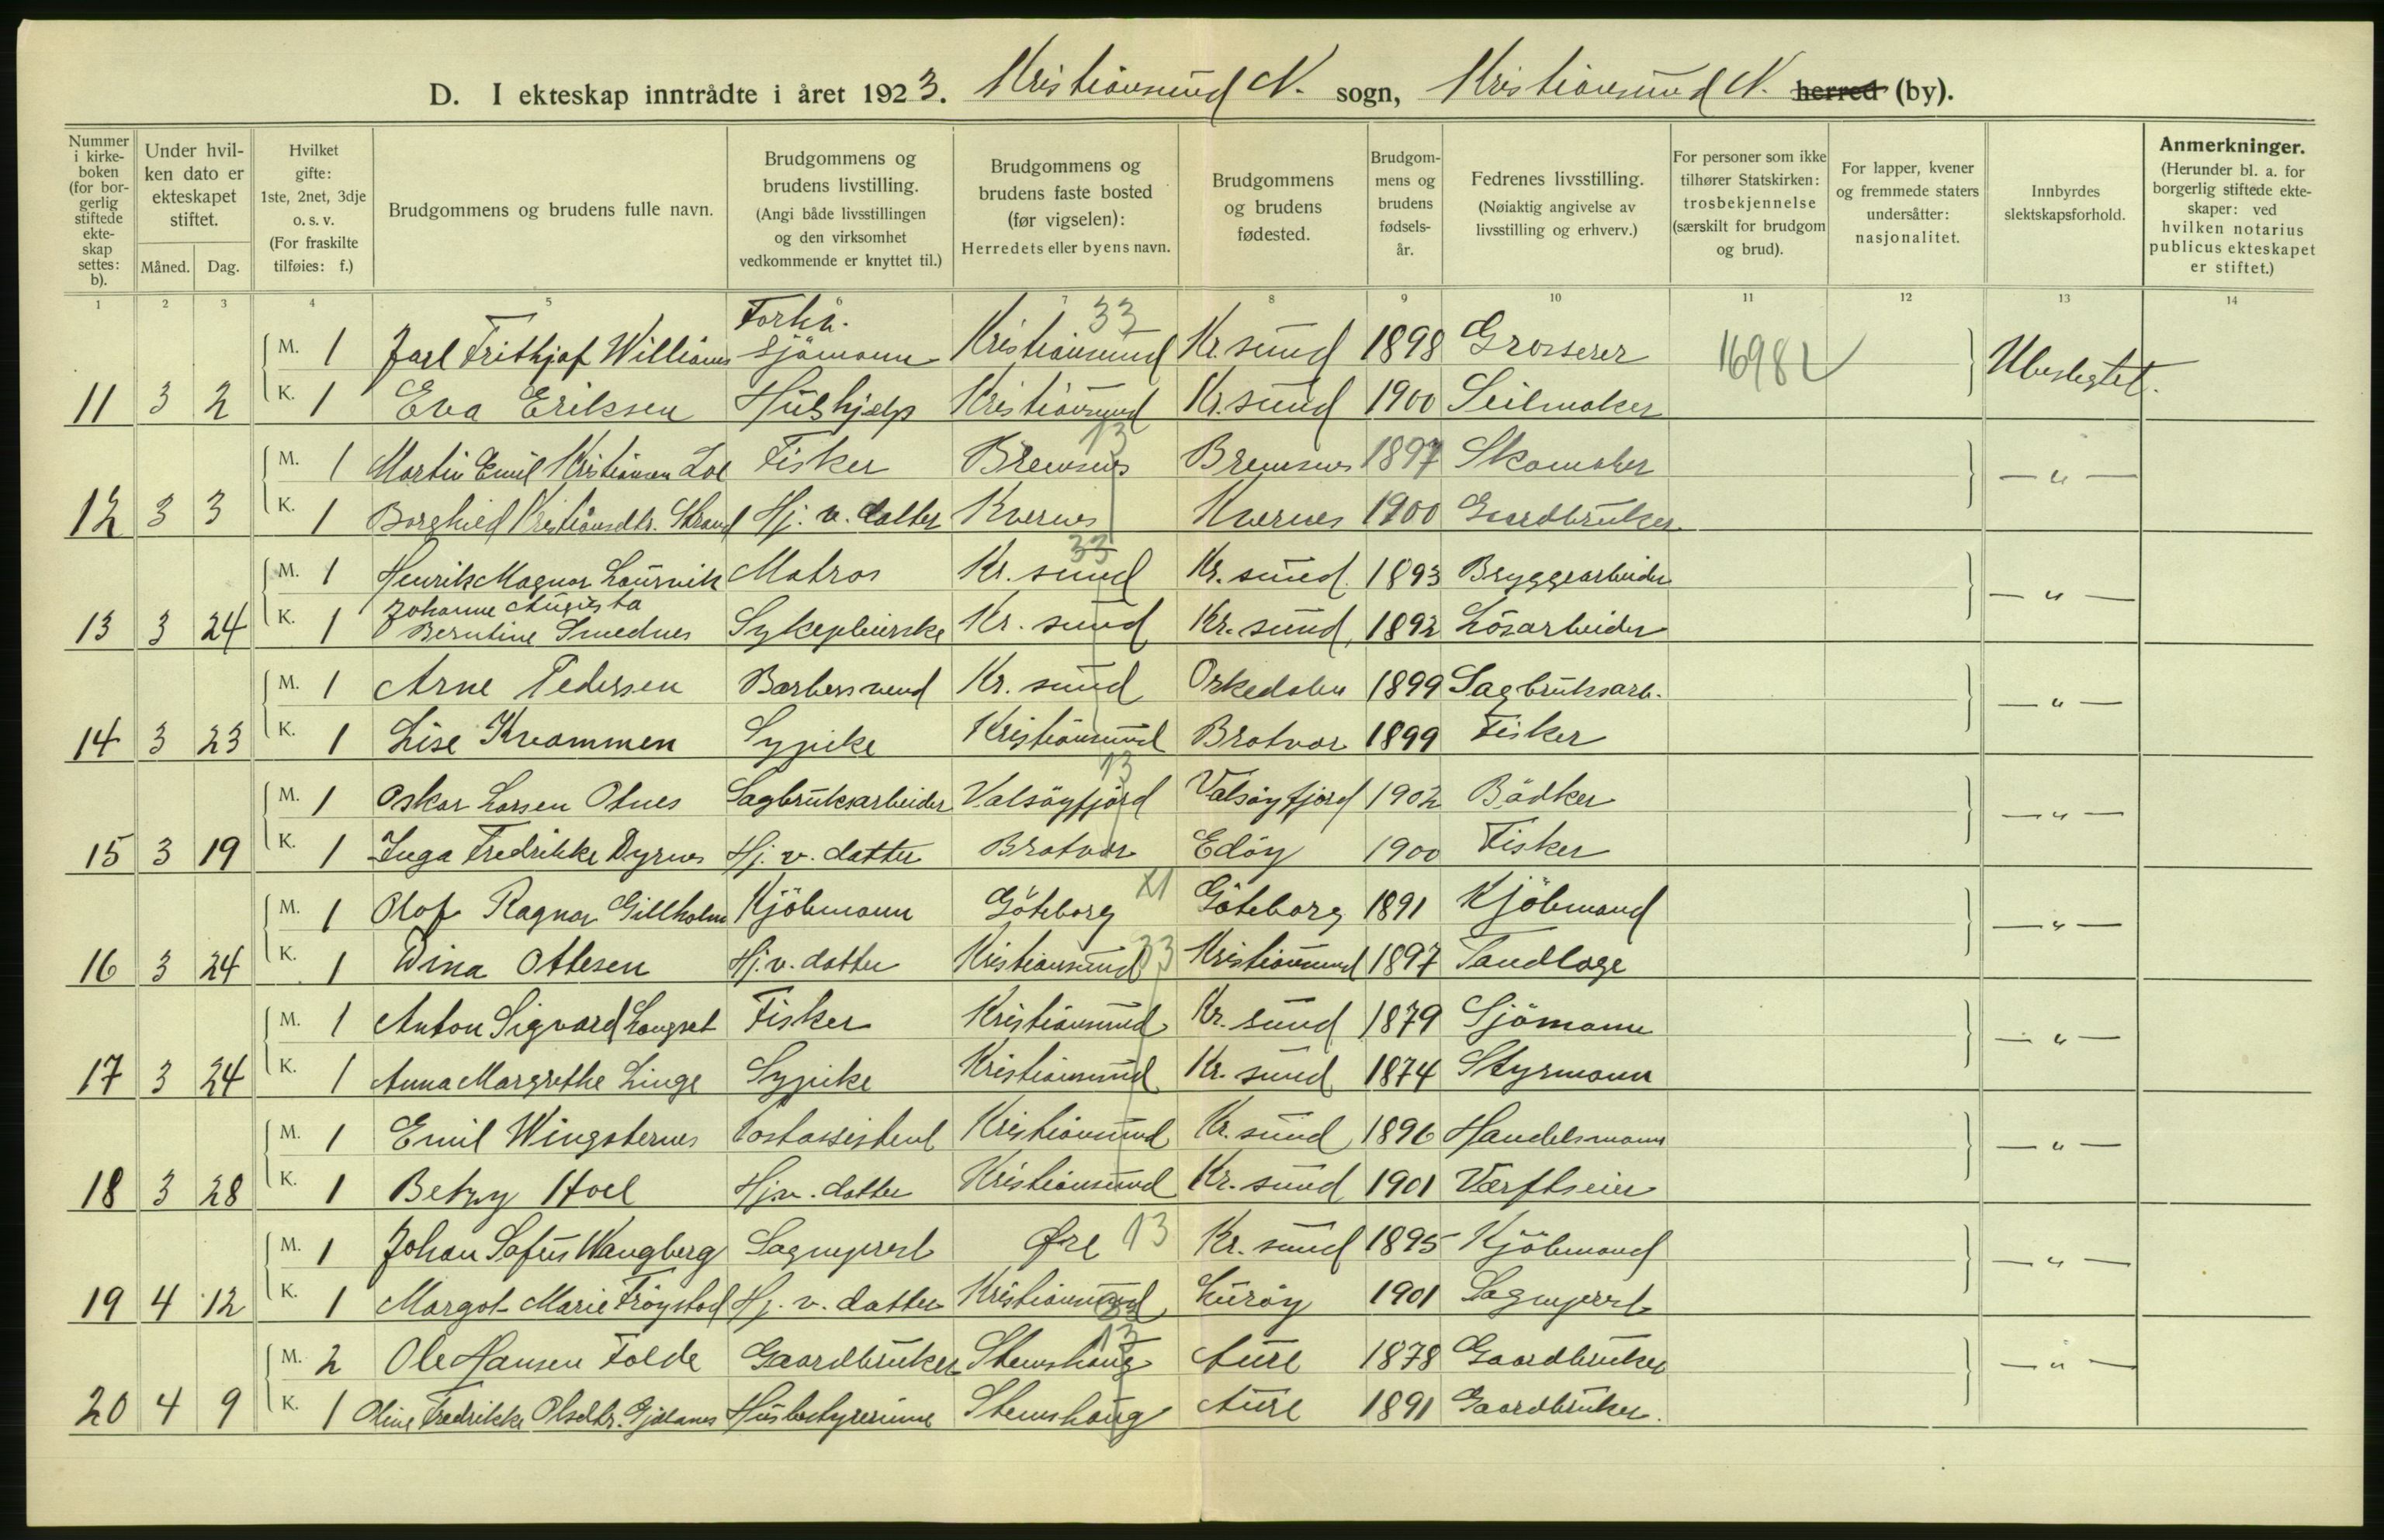 D. I ekteskap inntrådte i året 1923. Kristiansund N. sogn, Kristiansund N. herred (by).
Nummer i kirke-boken (for bor-gerlig stiftede ekte-skap settes: b).
Under hvil-ken dato er ekteskapet stiftet.
Måned. Dag.
Hvilket gifte: 1ste, 2net, 3dje o. s. v. (For fraskilte tilføies: f.)
Brudgommens og brudens fulle navn.
Brudgommens og brudens livstilling. (Angi både livsstillingen og den virksomhet vedkommende er knyttet til.)
Brudgommens og brudens faste bosted (før vigselen): Herredets eller byens navn.
Brudgommens og brudens fødested.
Brudgom-mens og brudens fødsels-år.
Fedrenes livsstilling. (Nøiaktig angivelse av livsstilling og erhverv.)
For personer som ikke tilhører Statskirken: trosbekjennelse (særskilt for brudgom og brud).
For lapper, kvener og fremmede staters undersåtter: nasjonalitet.
Innbyrdes slektskapsforhold.
Anmerkninger. (Herunder bl. a. for borgerlig stiftede ekte-skaper: ved hvilken notarius publicus ekteskapet er stiftet.)
1 2 3 4 5 6 7 8 9 10 11 12 13 14
Forh. 33
M. 1 Jarl Frithjof Williams Sjömann Kristiansund Kr. sund 1898 Grosserer 16982 Ubeslegtet.
11 3 2 K. 1 Eva Eriksen Hushjelp Kristiansund Kr. sund 1900 Seilmaker
13
M. 1 Martin Emil Kristiansen Loe Fisker Bremsnes Bremsnes 1897 Skomaker — " —
12 3 3 K. 1 Borghild Kristiansdtr. Strand Hj. v. datter Kvernes Kvernes 1900 Gaardbruker
33
M. 1 Henrik Magnar Laurvik Matros Kr. sund Kr. sund. 1893 Bryggearbeider — " —
Johanne Augusta
13 3 24 K. 1 Berntine Smednes Sykepleierske Kr. sund Kr. sund, 1892 Lösarbeider
M. 1 Arne Pedersen Barbersvend Kr. sund Orkedalen 1899 Sagbruksarb. — " —
14 3 23 K. 1 Lise Kvammen Sypike Kristiansund Bratvær 1899 Fisker
13
M. 1 Oskar Larsen Otnes Sagbruksarbeider Valsöyfjord Valsöyfjord 1902 Bödker — " —
15 3 19 K. 1 Inga Fredrikke Dyrnes Hj. v. datter Bratvær Edöy 1900 Fisker
M. 1 Olof Ragnar Gillholm Kjöbmann Göteborg Göteborg 1891 Kjöbmand — " —
16 3 24 K. 1 Dina Ottesen Hj. v. datter Kristiansund 33 Kristiansund 1897 Tandlæge
M. 1 Anton Sigvard Langset Fisker Kristiansund Kr. sund 1879 Sjömann — " —
17 3 24 K. 1 Anna Margrethe Linge Sypike Kristiansund Kr. sund 1874 Styrmann
M. 1 Emil Wingsternes Postassistent Kristiansund Kr. sund 1896 Handelsmann — " —
18 3 28 K. 1 Betzy Hoel Hj. v. datter Kristiansund Kr. sund 1901 Værftseier
M. 1 Johan Sofus Wangberg Sagmester Øre 13 Kr. sund 1895 Kjöbmand — " —
19 4 12 K. 1 Margot Marie Fröystad Hj. v. datter Kristiansund Luröy 1901 Sagmester
13
M. 2 Ole Hansen Folde Gaardbruker Stemshaug Aure 1878 Gaardbruker — " —
20 4 9 K. 1 Oline Fredrikke Olsdtr. Gjelanes Husbestyrerinne Stemshaug Aure 1891 Gaardbruker.